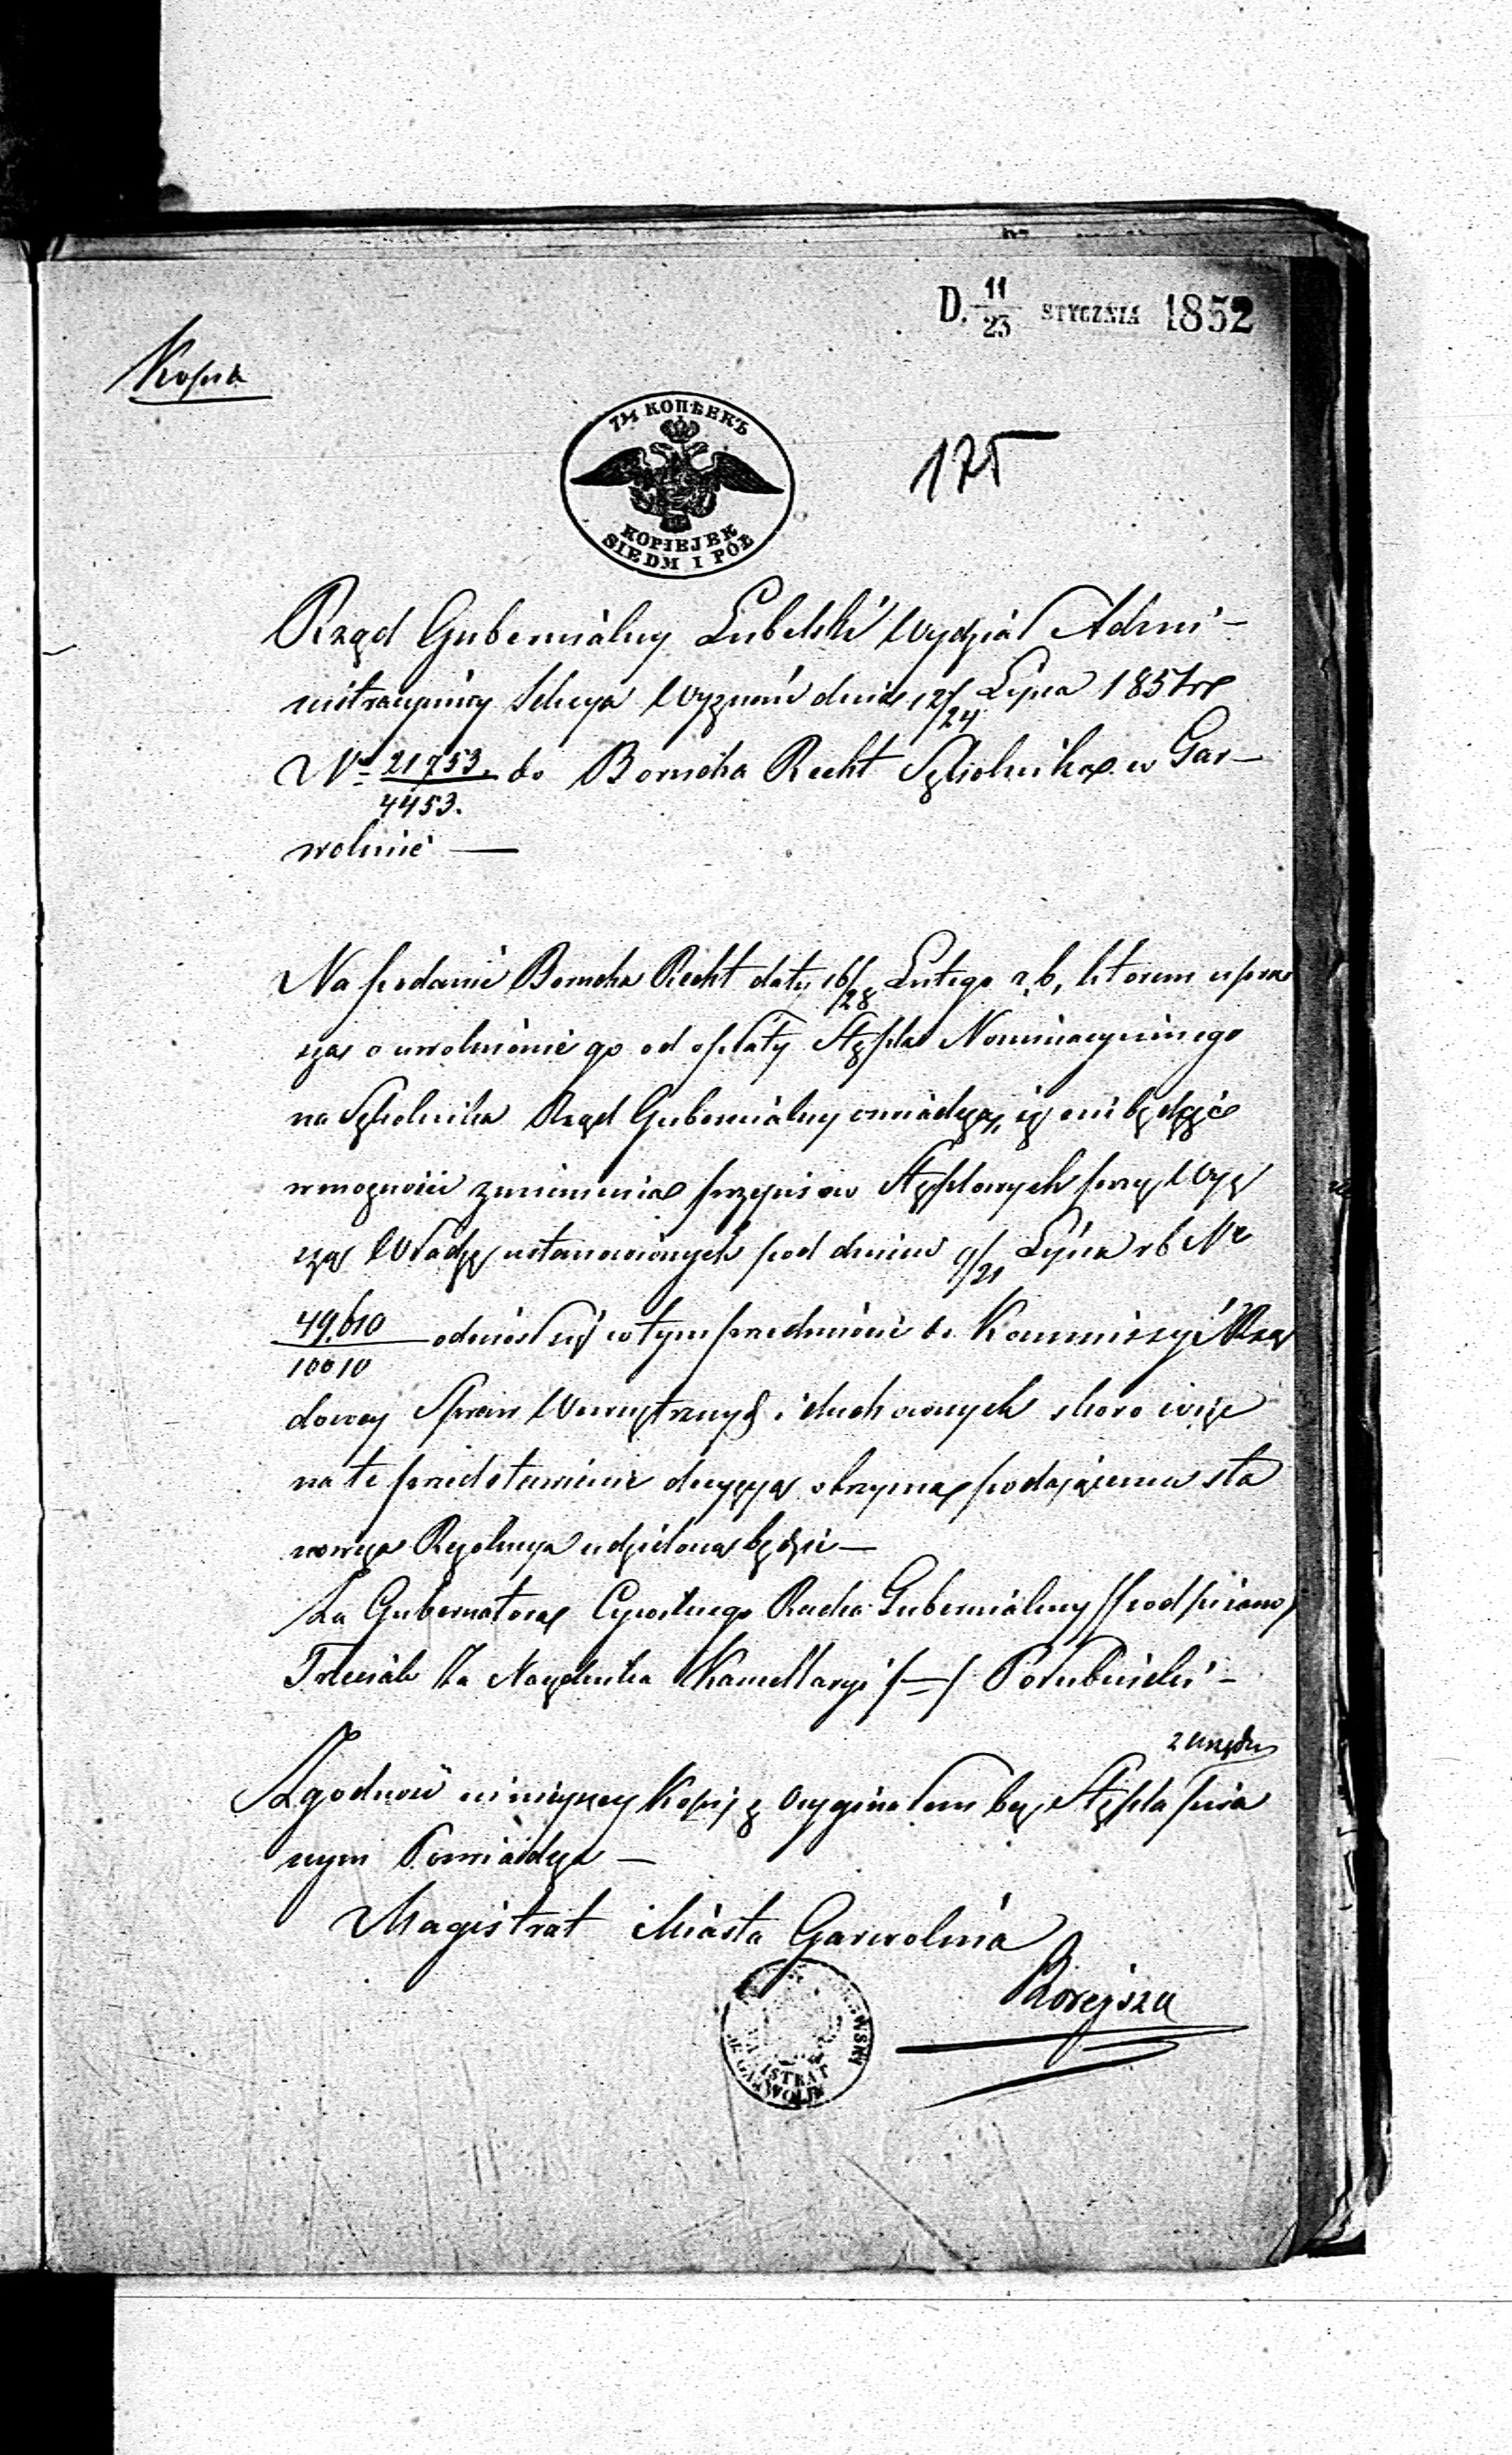 D. 11/23 STYCZNIA 1852
Kopia
7½ КОПѢЕКЪ
KOPIEJEK
SIEDM I PÓŁ
175
Rząd Gubernialny Lubelski Wydział Admi-
nistracyiny Sekcya Wyznań dnia 12/24 Lipca 1851 r
Nr 21753/4453. do Boruchа Recht Szkolnika w Gar-
wolinie —
Na podanie Borucha Recht daty 16/28 Lutego r. b. którem upra
sza o uwolnienie go od opłaty Stępla Nominacyinego
na Szkolnika Rząd Gubernialny oświadcza, iż nie będąc
w możności zmienienia przepisów Stęplowych przez Wyż
szą Władzę ustanowionych pod dniem 9/21 Lipca r b Nr
49,610/10010 odniósł się w tym przedmiocie do Kommissyi Rzą
dowey Spraw Wewnętrznych i duchownych skoro więc
na te przedstawienie decyzyą otrzyma podającemu sta
nowcza Rezolucya udzieloną będzie —
Za Gubernatora Cywilnego Radca Gubernialny /podpisano/
Trzeciak Za Naczelnika Kancellaryi /—/ Porubicki —
Zgodność ninieyszey Kopij z Oryginałem bez Stępla z urzędu pisa
nym Poswiadcza —
Magistrat Miasta Garwolina
Borejsza
MAGISTRAT
M. GARWOLIN